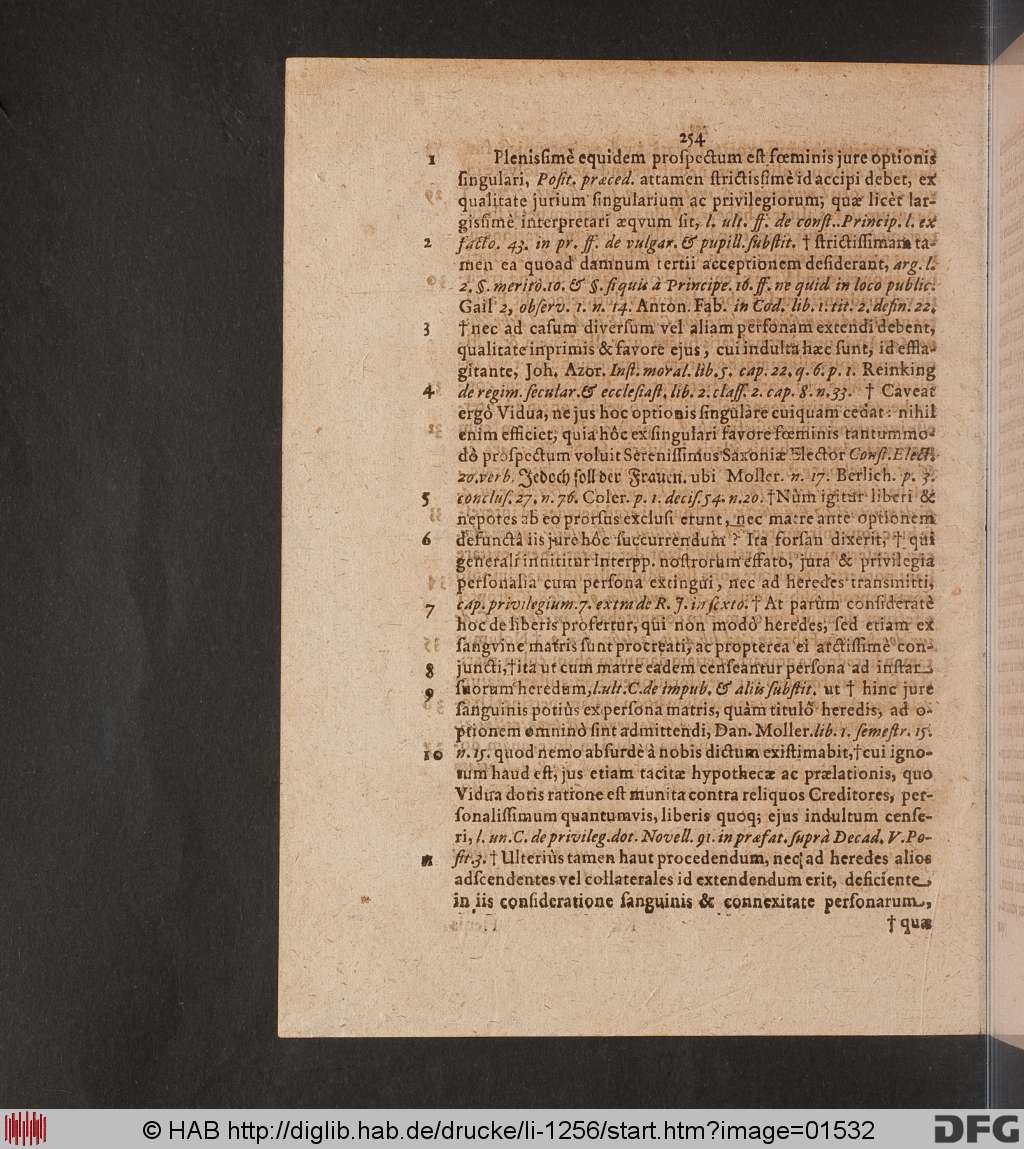 254
1 Plenisſimè equidem proſpectum eſt fœminis jure optionis
ſingulari, Poſit. præced. attamen ſtrictisſimè id accipi debet, ex
qualitate jurium ſingularium ac privilegiorum; quæ licèt lar-
gisſimè interpretari æqvum ſit, l. ult. ff. de conſt.. Princip. l. ex
2 facto. 43. in pr. ff. de vulgar. & pupill. ſubſtit. † ſtrictiſſimam ta-
men ea quoad damnum tertii acceptionem deſiderant, arg. l.
2. §. meritò. 10. & §. ſi quis à Principe. 16. ff. ne quid in loco public.
Gail 2, obſerv. 1. n. 14. Anton. Fab. in Cod. lib. 1. tit. 2. defin. 22.
3 † nec ad caſum diverſum vel aliam perſonam extendi debent,
qualitate inprimis & favore ejus, cui indulta hæc ſunt, id effla-
gitante, Joh. Azor. Inſt. moral. lib. 5. cap. 22. q. 6. p. 1. Reinking
4 de regim. ſecular. & eccleſiaſt. lib. 2. claſſ. 2. cap. 8. n. 33. † Caveat
ergò Vidua, ne jus hoc optionis ſingulare cuiquam cedat: nihil
enim efficiet, quia hôc ex ſingulari favore fœminis tantummo-
dò proſpectum voluit Sereniſſimus Saxoniæ Elector Conſt. Elect.
20. verb. Jedoch ſoll der Frauen. ubi Moller. n. 17. Berlich. p. 3.
5 concluſ. 27. n. 76. Coler. p. 1. deciſ. 54. n. 20. † Nùm igitur liberi &
nepotes ab eo prorſus excluſi erunt, nec matre ante optionem
6 defunctâ iis jure hôc ſuccurrendum? Ita forſan dixerit, † qui
generali innititur Interpp. noſtrorum effato, jura & privilegia
perſonalia cum perſona extingui, nec ad heredes transmitti,
7 cap. privilegium. 7. extra de R. J. in ſexto. † At parùm conſideratè
hoc de liberis profertur, qui non modò heredes, ſed etiam ex
ſangvine matris ſunt procreati, ac propterea ei arctiſſimè con-
8 juncti, † ita ut cum matre eadem cenſeantur perſona ad inſtar
9 ſuorum heredum, l. ult. C. de impub. & aliis ſubſtit. ut † hinc jure
ſanguinis potiùs ex perſona matris, quàm titulô heredis, ad o-
ptionem omninò ſint admittendi, Dan. Moller. lib. 1. ſemeſtr. 15.
10 n. 15. quod nemo abſurdè à nobis dictum exiſtimabit, † cui igno-
tum haud eſt, jus etiam tacitæ hypothecæ ac prælationis, quo
Vidua dotis ratione eſt munita contra reliquos Creditores, per-
ſonaliſſimum quantumvis, liberis quoq; ejus indultum cenſe-
ri, l. un. C. de privileg. dot. Novell. 91. in præfat. ſuprà Decad. V. Po-
ſit. 3. † Ulteriùs tamen haut procedendum, nec ad heredes alios
adſcendentes vel collaterales id extendendum erit, deficiente,
in iis conſideratione ſanguinis & connexitate perſonarum,
† quæ
© HAB http://diglib.hab.de/drucke/li-1256/start.htm?image=01532
DFG